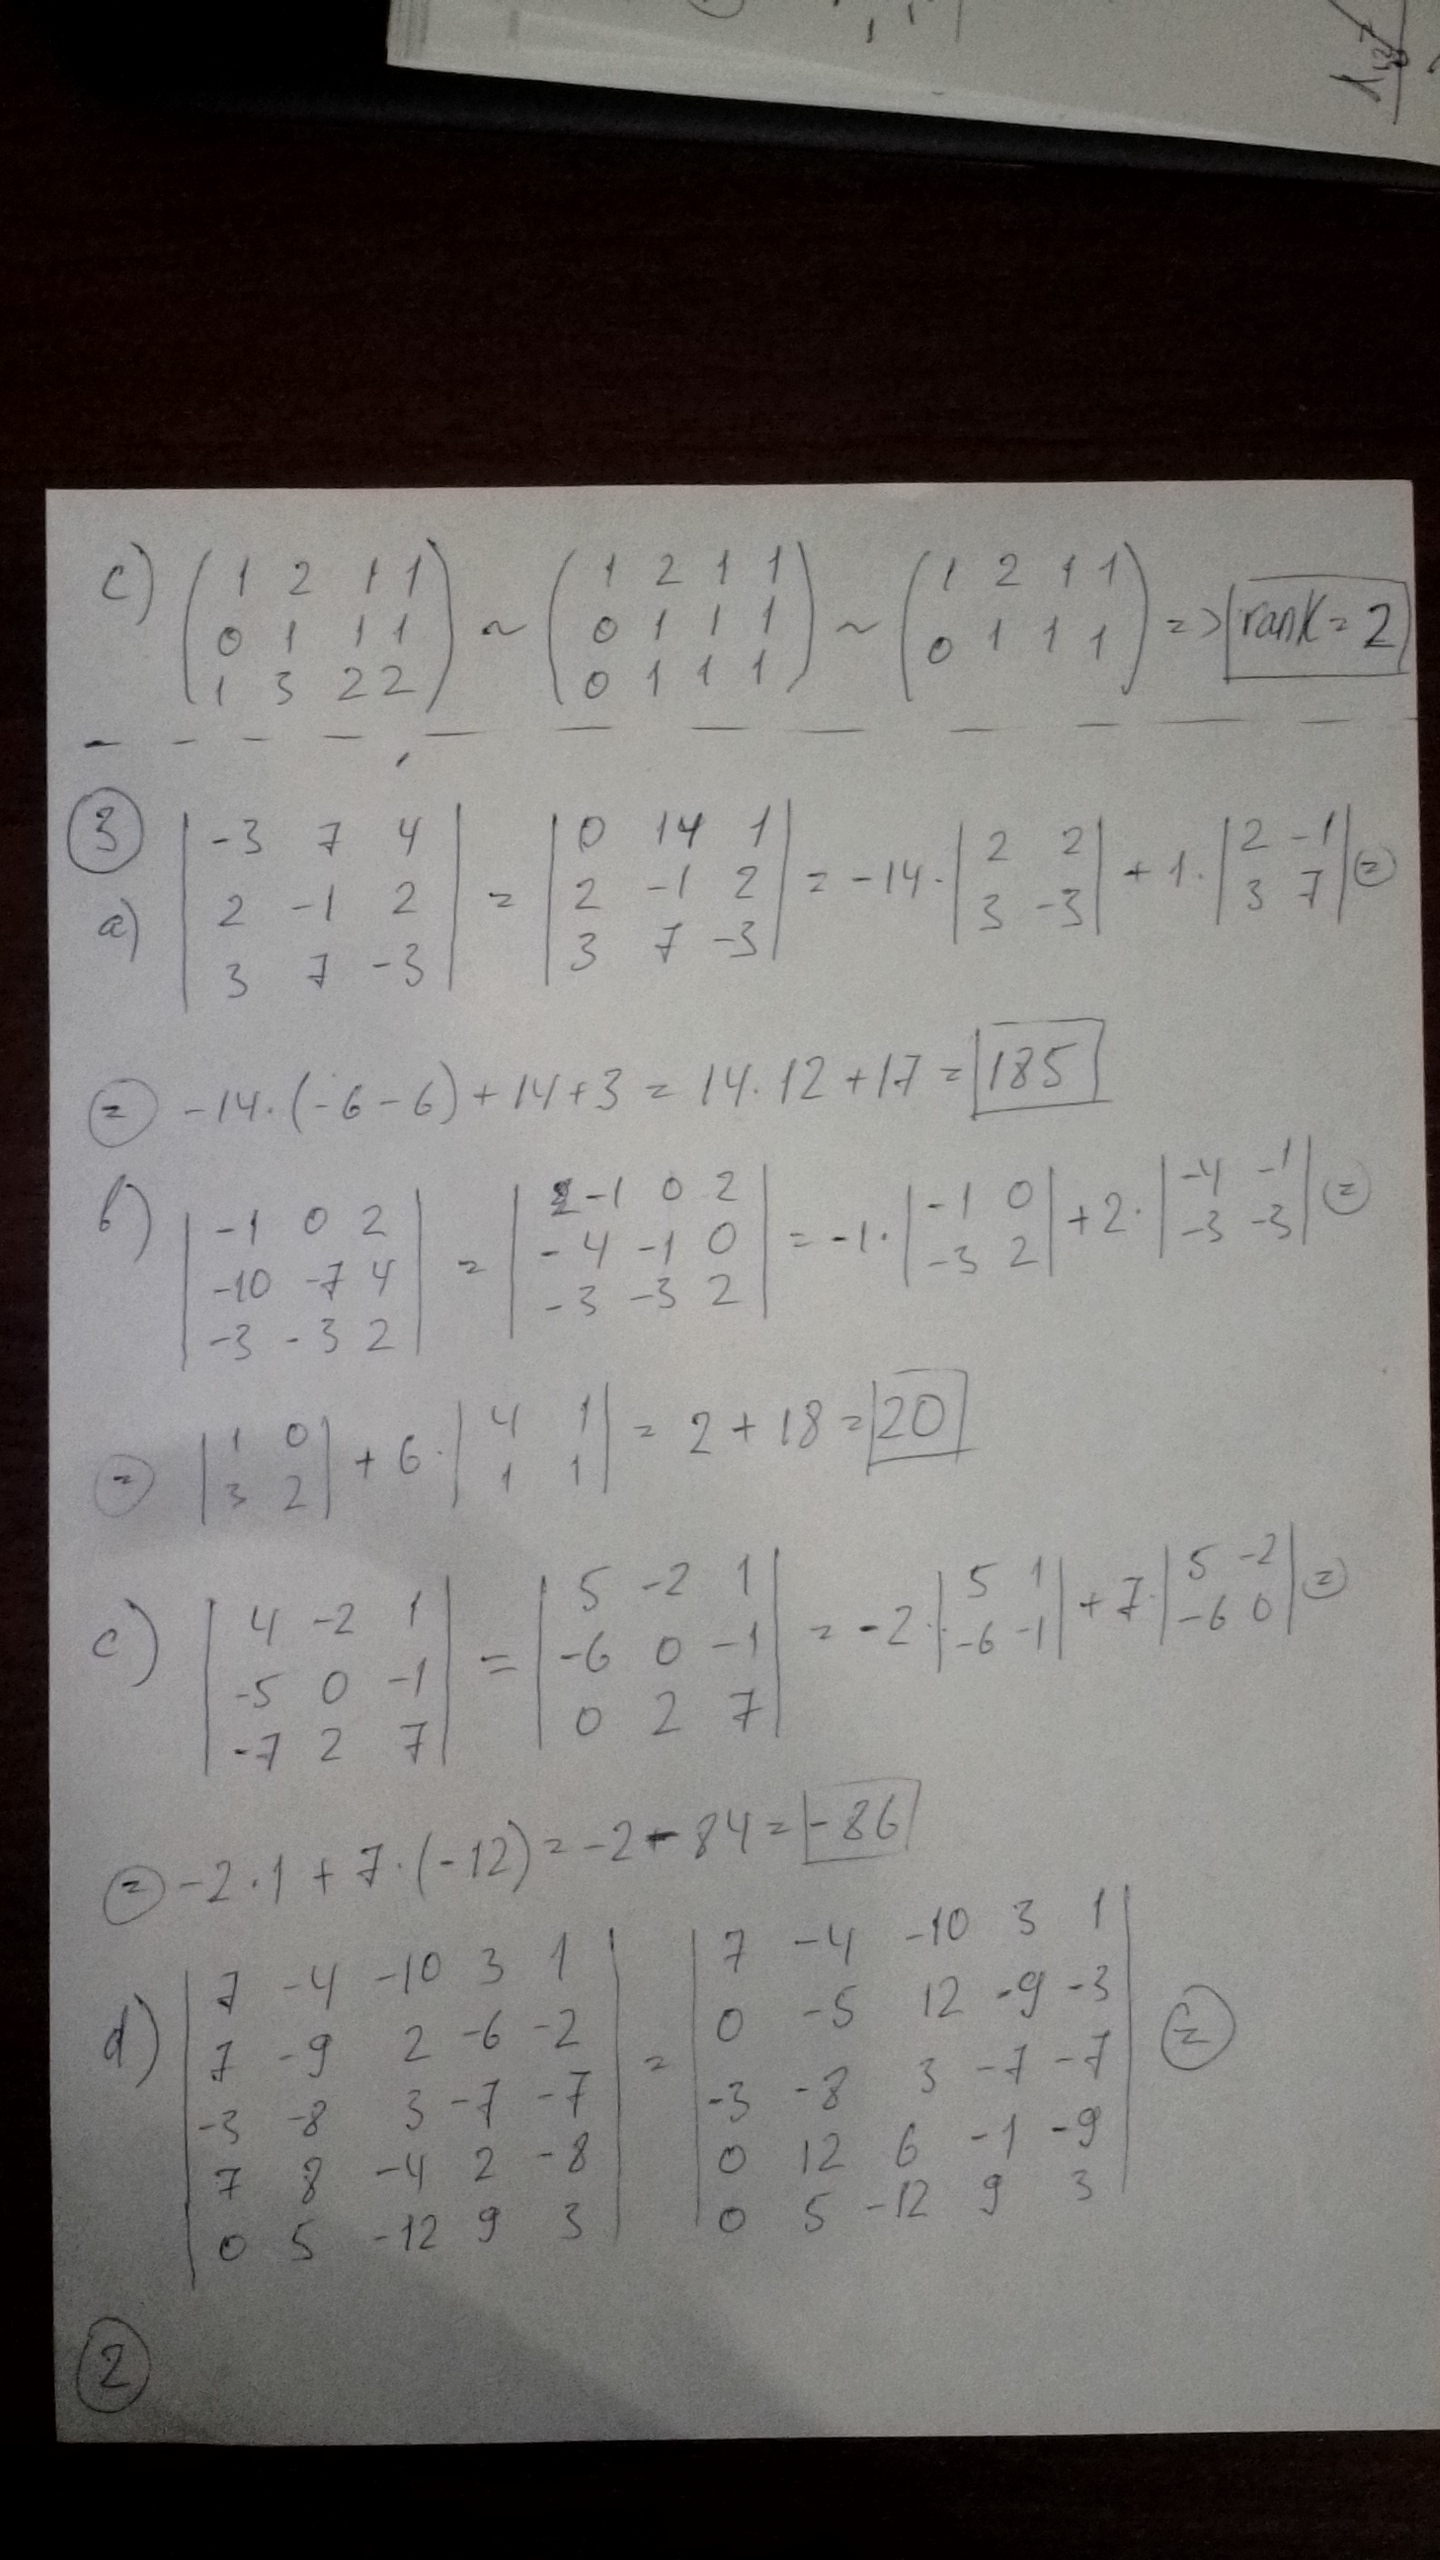 c) (1 2 1 1 / 0 1 1 1 / 1 3 2 2) ~ (1 2 1 1 / 0 1 1 1 / 0 1 1 1) ~ (1 2 1 1 / 0 1 1 1) => rank = 2
3
a) |-3 7 4 / 2 -1 2 / 3 7 -3| = |0 14 1 / 2 -1 2 / 3 7 -3| = -14 · |2 2 / 3 -3| + 1 · |2 -1 / 3 7| =
= -14 · (-6 - 6) + 14 + 3 = 14 · 12 + 17 = 185
b) |-1 0 2 / -10 -7 4 / -3 -3 2| = |-1 0 2 / -4 -1 0 / -3 -3 2| = -1 · |-1 0 / -3 2| + 2 · |-4 -1 / -3 -3| =
= |1 0 / 3 2| + 6 · |4 1 / 1 1| = 2 + 18 = 20
c) |4 -2 1 / -5 0 -1 / -7 2 7| = |5 -2 1 / -6 0 -1 / 0 2 7| = -2 · |5 1 / -6 -1| + 7 · |5 -2 / -6 0| =
= -2 · 1 + 7 · (-12) = -2 - 84 = -86
d) |7 -4 -10 3 1 / 7 -9 2 -6 -2 / -3 -8 3 -7 -7 / 7 8 -4 2 -8 / 0 5 -12 9 3| = |7 -4 -10 3 1 / 0 -5 12 -9 -3 / -3 -8 3 -7 -7 / 0 12 6 -1 -9 / 0 5 -12 9 3| =
2